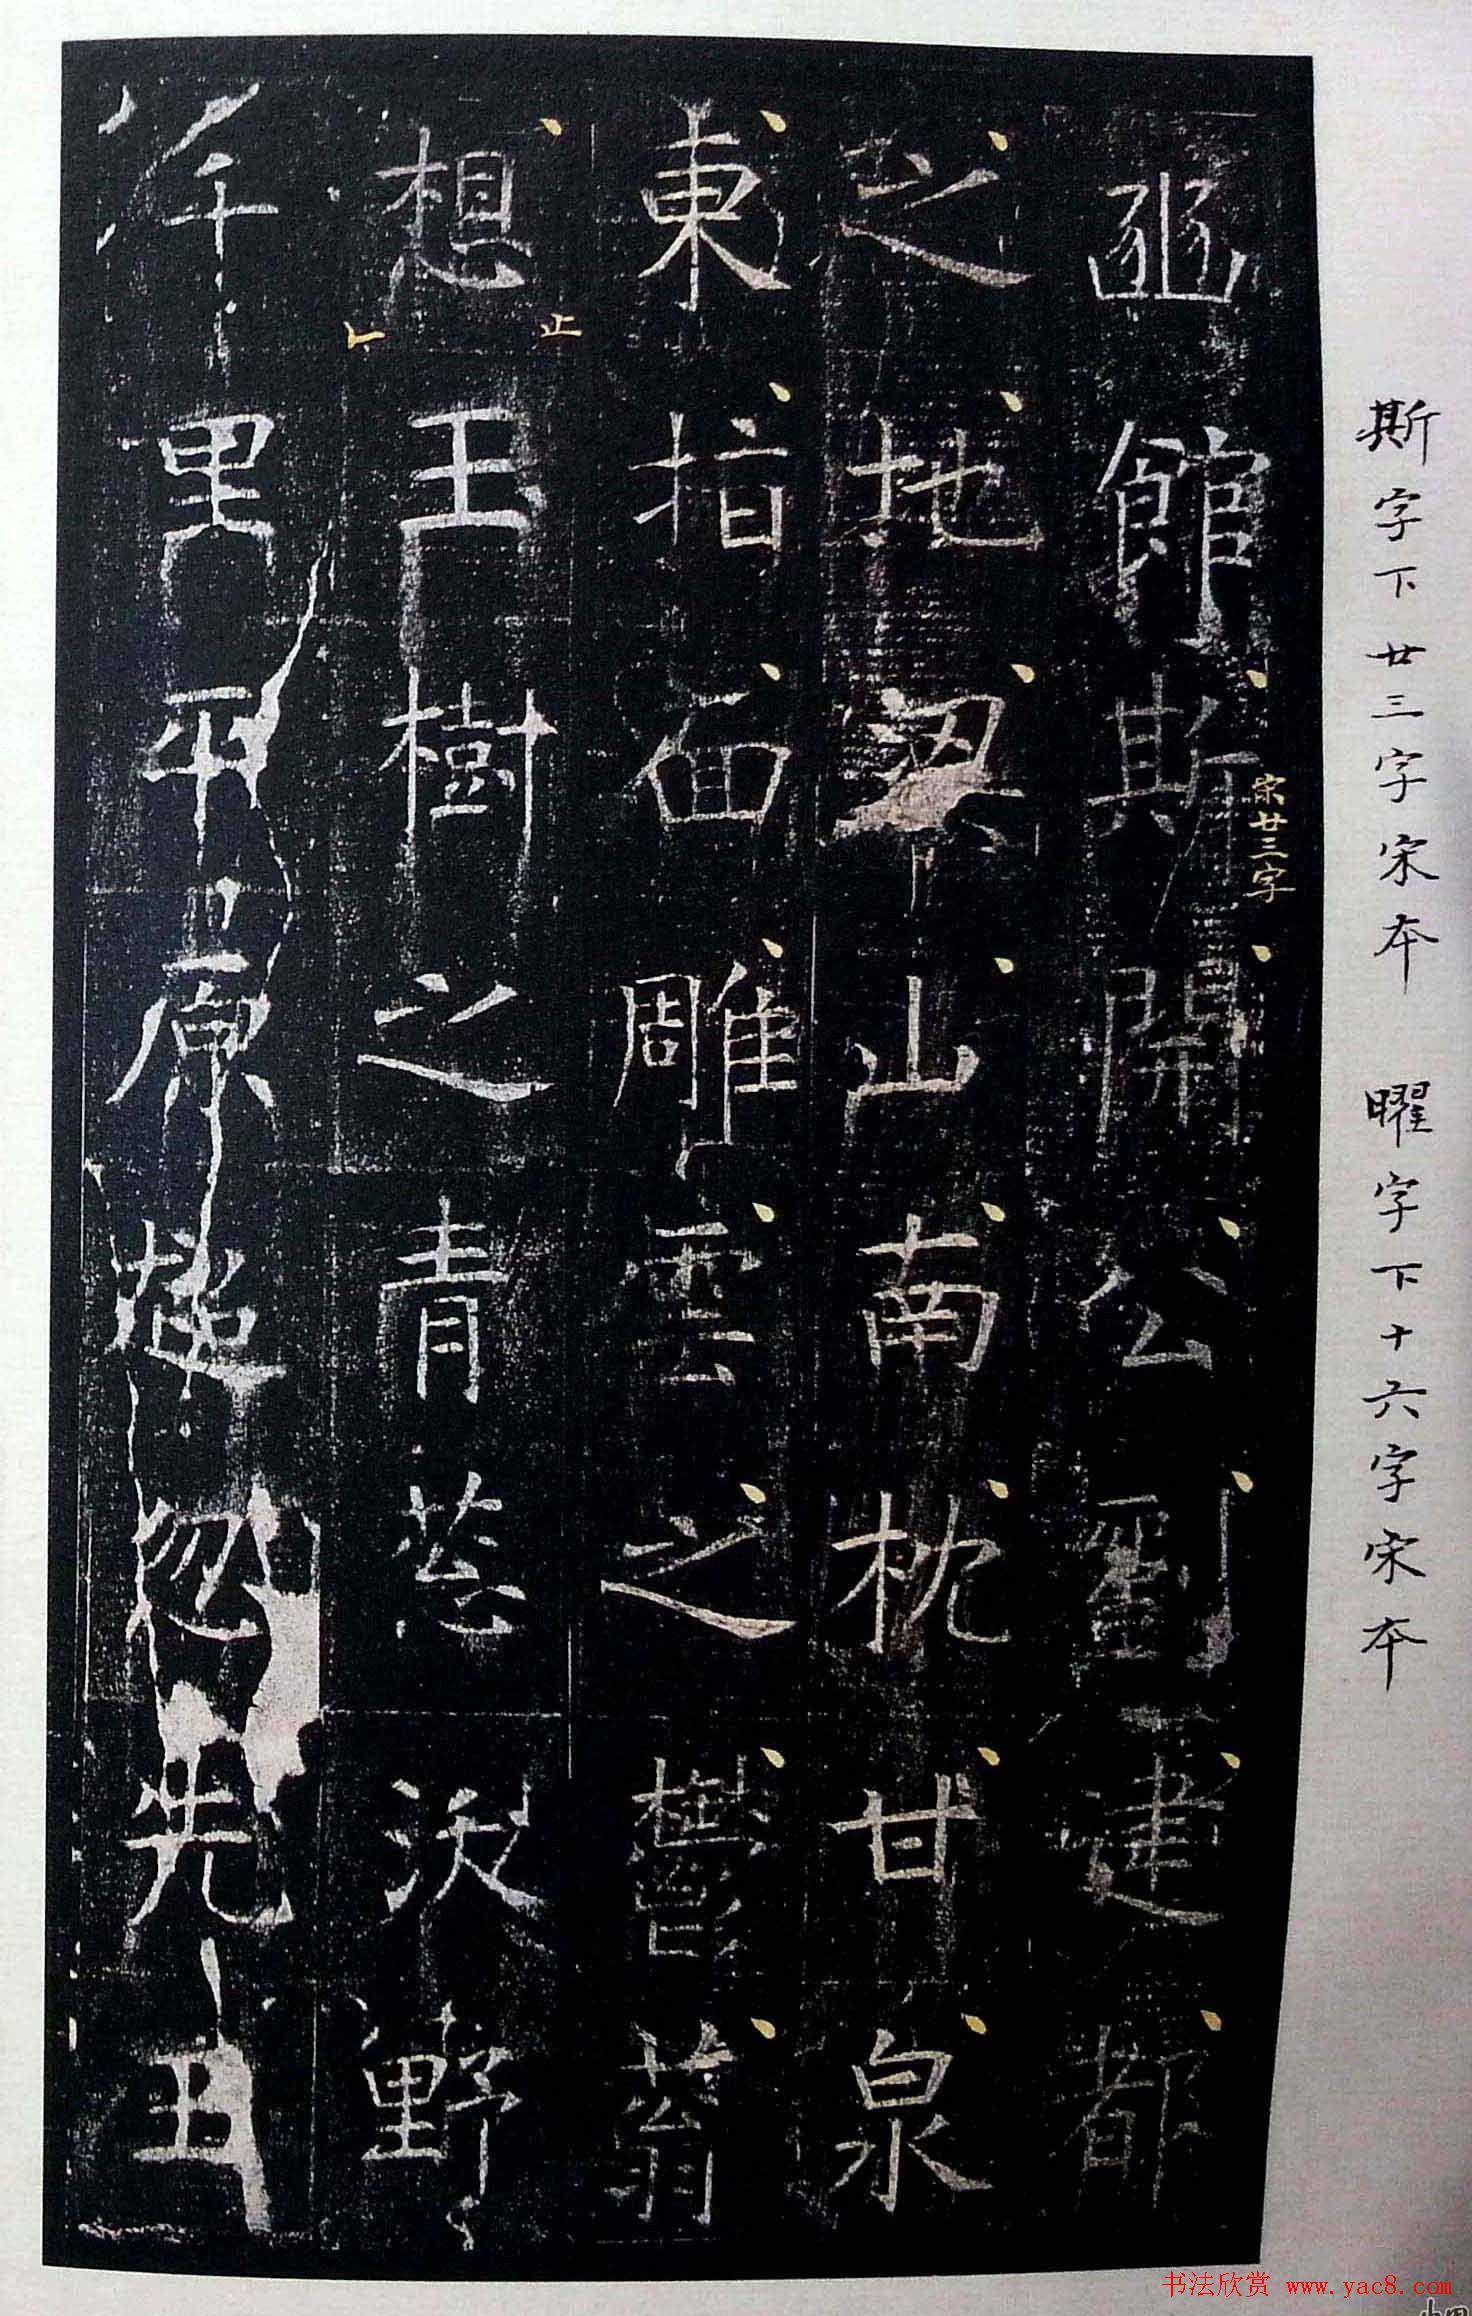 斯字下廿三字宋本 曜字下十六字宋本
宋廿三字
豳館斯開公劉建都
之地梁山南枕甘泉
東指面雕雲之鬱蓊
想玉樹之青葱沃野
止
千里平原超忽先
书法欣赏 www.yac8.com